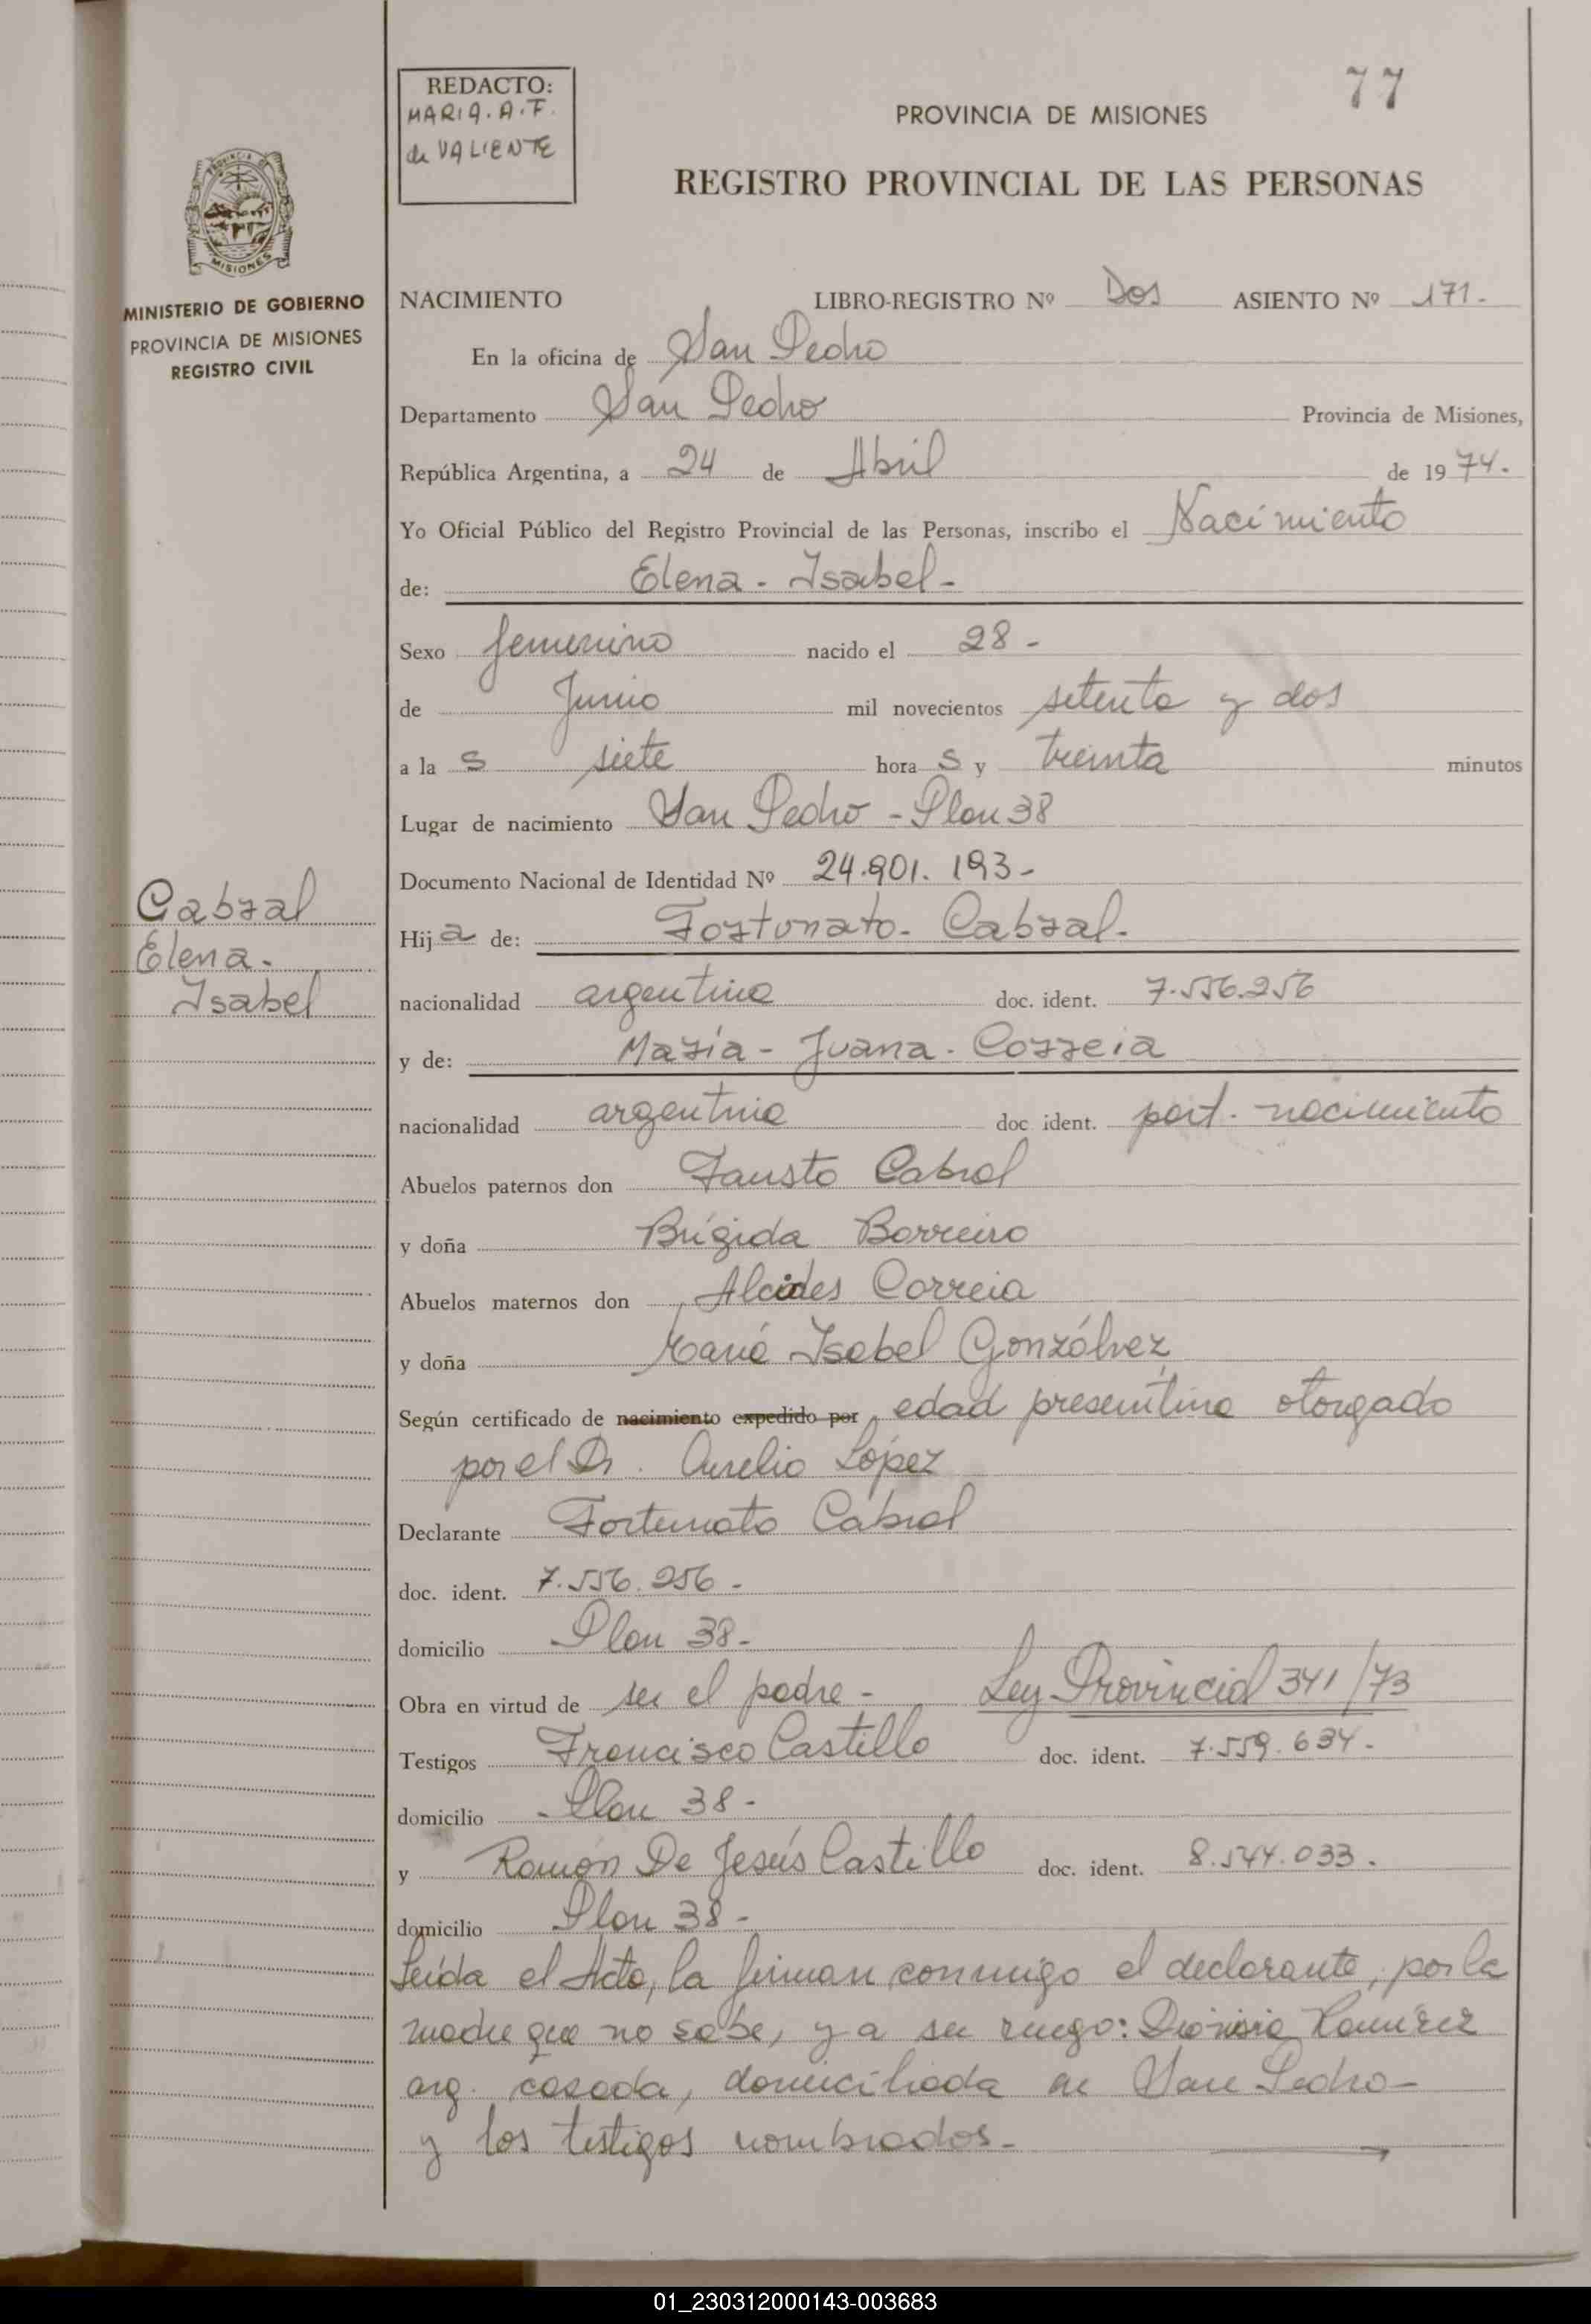 77
REDACTO:
MARIA. A. F.
de VALIENTE
PROVINCIA DE MISIONES
REGISTRO PROVINCIAL DE LAS PERSONAS
PROVINCIA DE
MISIONES
MINISTERIO DE GOBIERNO
PROVINCIA DE MISIONES
REGISTRO CIVIL
NACIMIENTO LIBRO-REGISTRO Nº Dos ASIENTO Nº 171.-
En la oficina de San Pedro
Departamento San Pedro Provincia de Misiones,
República Argentina, a 24 de Abril de 1974.-
Yo Oficial Público del Registro Provincial de las Personas, inscribo el Nacimiento
de: Elena - Isabel -
Sexo femenino nacido el 28 -
de Junio mil novecientos setenta y dos
a la s siete hora s y treinta minutos
Lugar de nacimiento San Pedro - Plan 38
Documento Nacional de Identidad Nº 24.901.193-
Cabral
Elena.
Isabel
Hija de: Fortunato - Cabral.
nacionalidad argentina doc. ident. 7.556.256
y de: María - Juana - Correia
nacionalidad argentina doc ident. part. nacimiento
Abuelos paternos don Fausto Cabral
y doña Brígida Borreiro
Abuelos maternos don Alcides Correia
y doña María Isabel Gonzálvez
Según certificado de nacimiento expedido por edad presuntiva otorgado
por el Dr. Aurelio López
Declarante Fortunato Cabral
doc. ident. 7.556.256 -
domicilio Plan 38-
Obra en virtud de ser el padre - Ley Provincial 341/73
Testigos Francisco Castillo doc. ident. 7.559.634-
domicilio Plan 38-
y Ramón De Jesús Castillo doc. ident. 8.544.033.
domicilio Plan 38-
Leída el Acta, la firman conmigo el declarante, por la
madre que no sabe, y a su ruego: Dionisia Ramírez
arg. casada, domiciliada en San Pedro-
y los testigos nombrados-
01_230312000143-003683